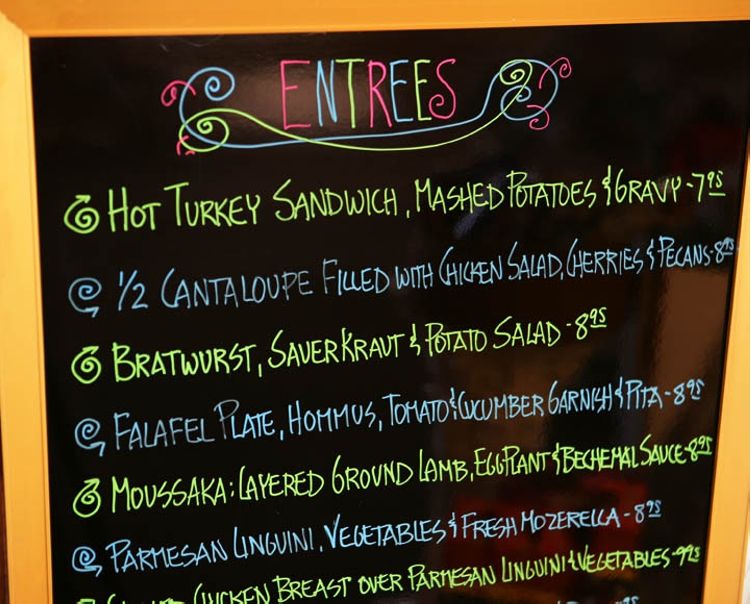 ENTREES
HOT TURKEY SANDWICH, MASHED POTATOES & GRAVY - 7.95
1/2 CANTALOUPE FILLED WITH CHICKEN SALAD, CHERRIES & PECANS - 8.95
BRATWURST, SAUERKRAUT & POTATO SALAD - 8.95
FALAFEL PLATE, HOMMUS, TOMATO & CUCUMBER GARNISH & PITA - 8.95
MOUSSAKA: LAYERED GROUND LAMB, EGGPLANT & BECHEMAL SAUCE - 8.95
PARMESAN LINGUINI, VEGETABLES & FRESH MOZERELLA - 8.95
CHICKEN BREAST OVER PARMESAN LINGUINI & VEGETABLES - 9.95